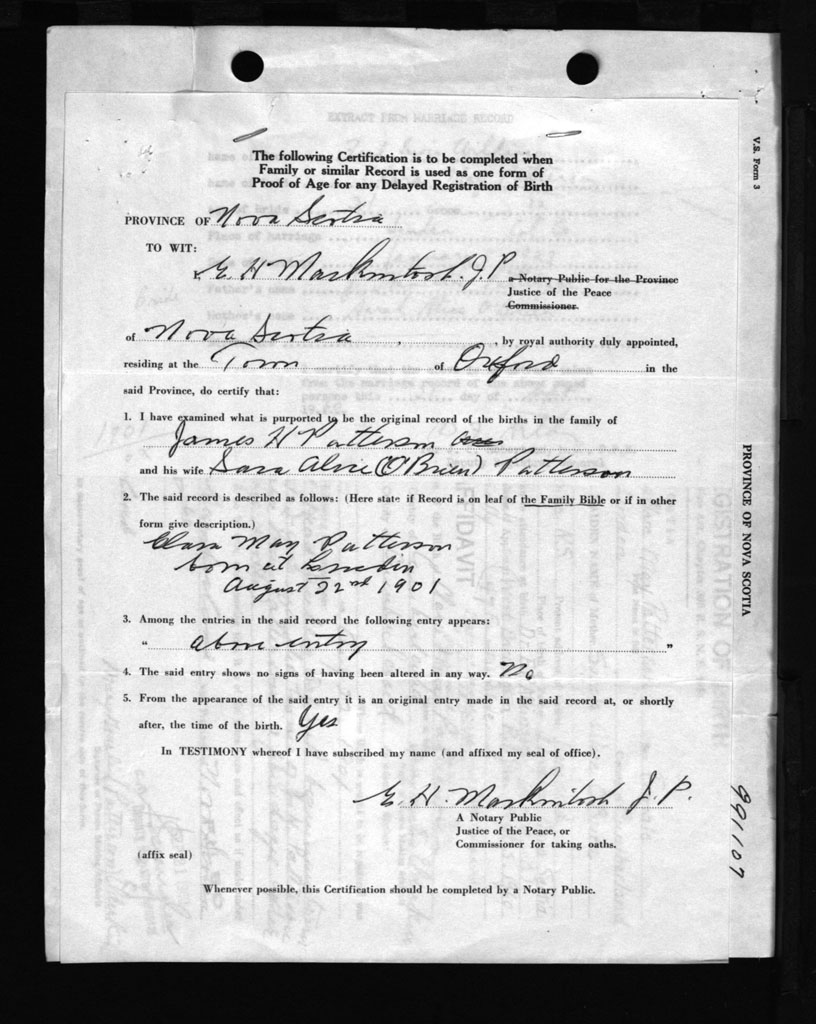 V.S. Form 3
The following Certification is to be completed when
Family or similar Record is used as one form of
Proof of Age for any Delayed Registration of Birth
PROVINCE OF Nova Scotia
TO WIT:
I, E. H. Mackintosh. J. P. a Notary Public for the Province
Justice of the Peace
Commissioner.
of Nova Scotia, by royal authority duly appointed,
residing at the Town of Oxford in the
said Province, do certify that:
1. I have examined what is purported to be the original record of the births in the family of
James H Patterson
and his wife Sara Alice (O'Brien) Patterson
2. The said record is described as follows: (Here state if Record is on leaf of the Family Bible or if in other
form give description.)
Clara May Patterson
born at
August 22nd 1901
3. Among the entries in the said record the following entry appears:
" above entry "
4. The said entry shows no signs of having been altered in any way. No
5. From the appearance of the said entry it is an original entry made in the said record at, or shortly
after, the time of the birth. Yes
In TESTIMONY whereof I have subscribed my name (and affixed my seal of office).
E. H. Mackintosh J. P.
A Notary Public
Justice of the Peace, or
Commissioner for taking oaths.
(affix seal)
Whenever possible, this Certification should be completed by a Notary Public.
PROVINCE OF NOVA SCOTIA
991107
EXTRACT FROM MARRIAGE RECORD